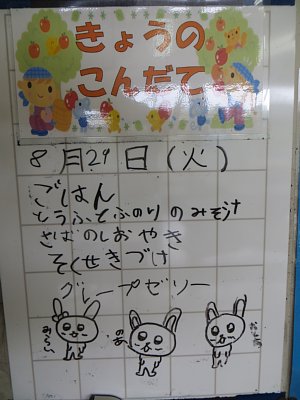 きょうの
こんだて
8月29日(火)
ごはん
とうふとふのりのみそ汁
さばのしおやき
そくせきづけ
グレープゼリー